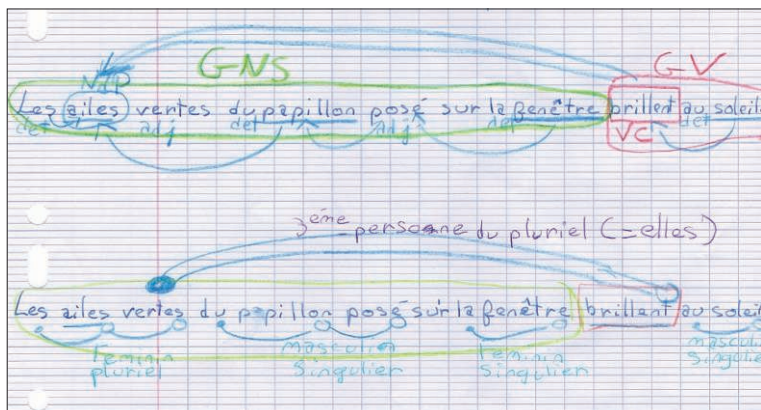 GNS GV
NIP
Les ailes vertes du papillon posé sur la fenêtre brillent au soleil
det adj det adj det VC det
3ème personne du pluriel (=elles)
Les ailes vertes du papillon posé sur la fenêtre brillant au soleil
Feminin masculin Feminin masculin
pluriel singulier singulier singulier